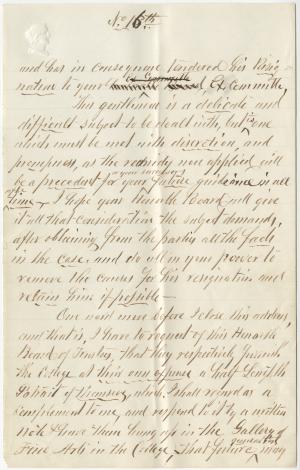 No 16th
and has in consequence tendered his Resig
nation to your Ex Committe
Ex. Committe
This gentleman is a delicate and
difficult subject to be dealt with, but is one
which must be met with discretion, and
promptness, as the remedy now applied will
be a precedent for your future guidance in all
time I hope your Honorble Board will give
it all that consideration the subject demands,
after obtaining from the parties all the facts
in the case, and do all in your power to
remove the causes for his resignation and
retain him if possible—
One word more before I close this address,
and that is, I have to request of this Honorble
Board of Trustees, that they respectively furnish
the College at their own expense a half length
Portrait of themselves, which I shall regard as a
complement to me, and respond to it by a written
note & have them hung up in the Gallery of
Fine Arts in the College, that future
may